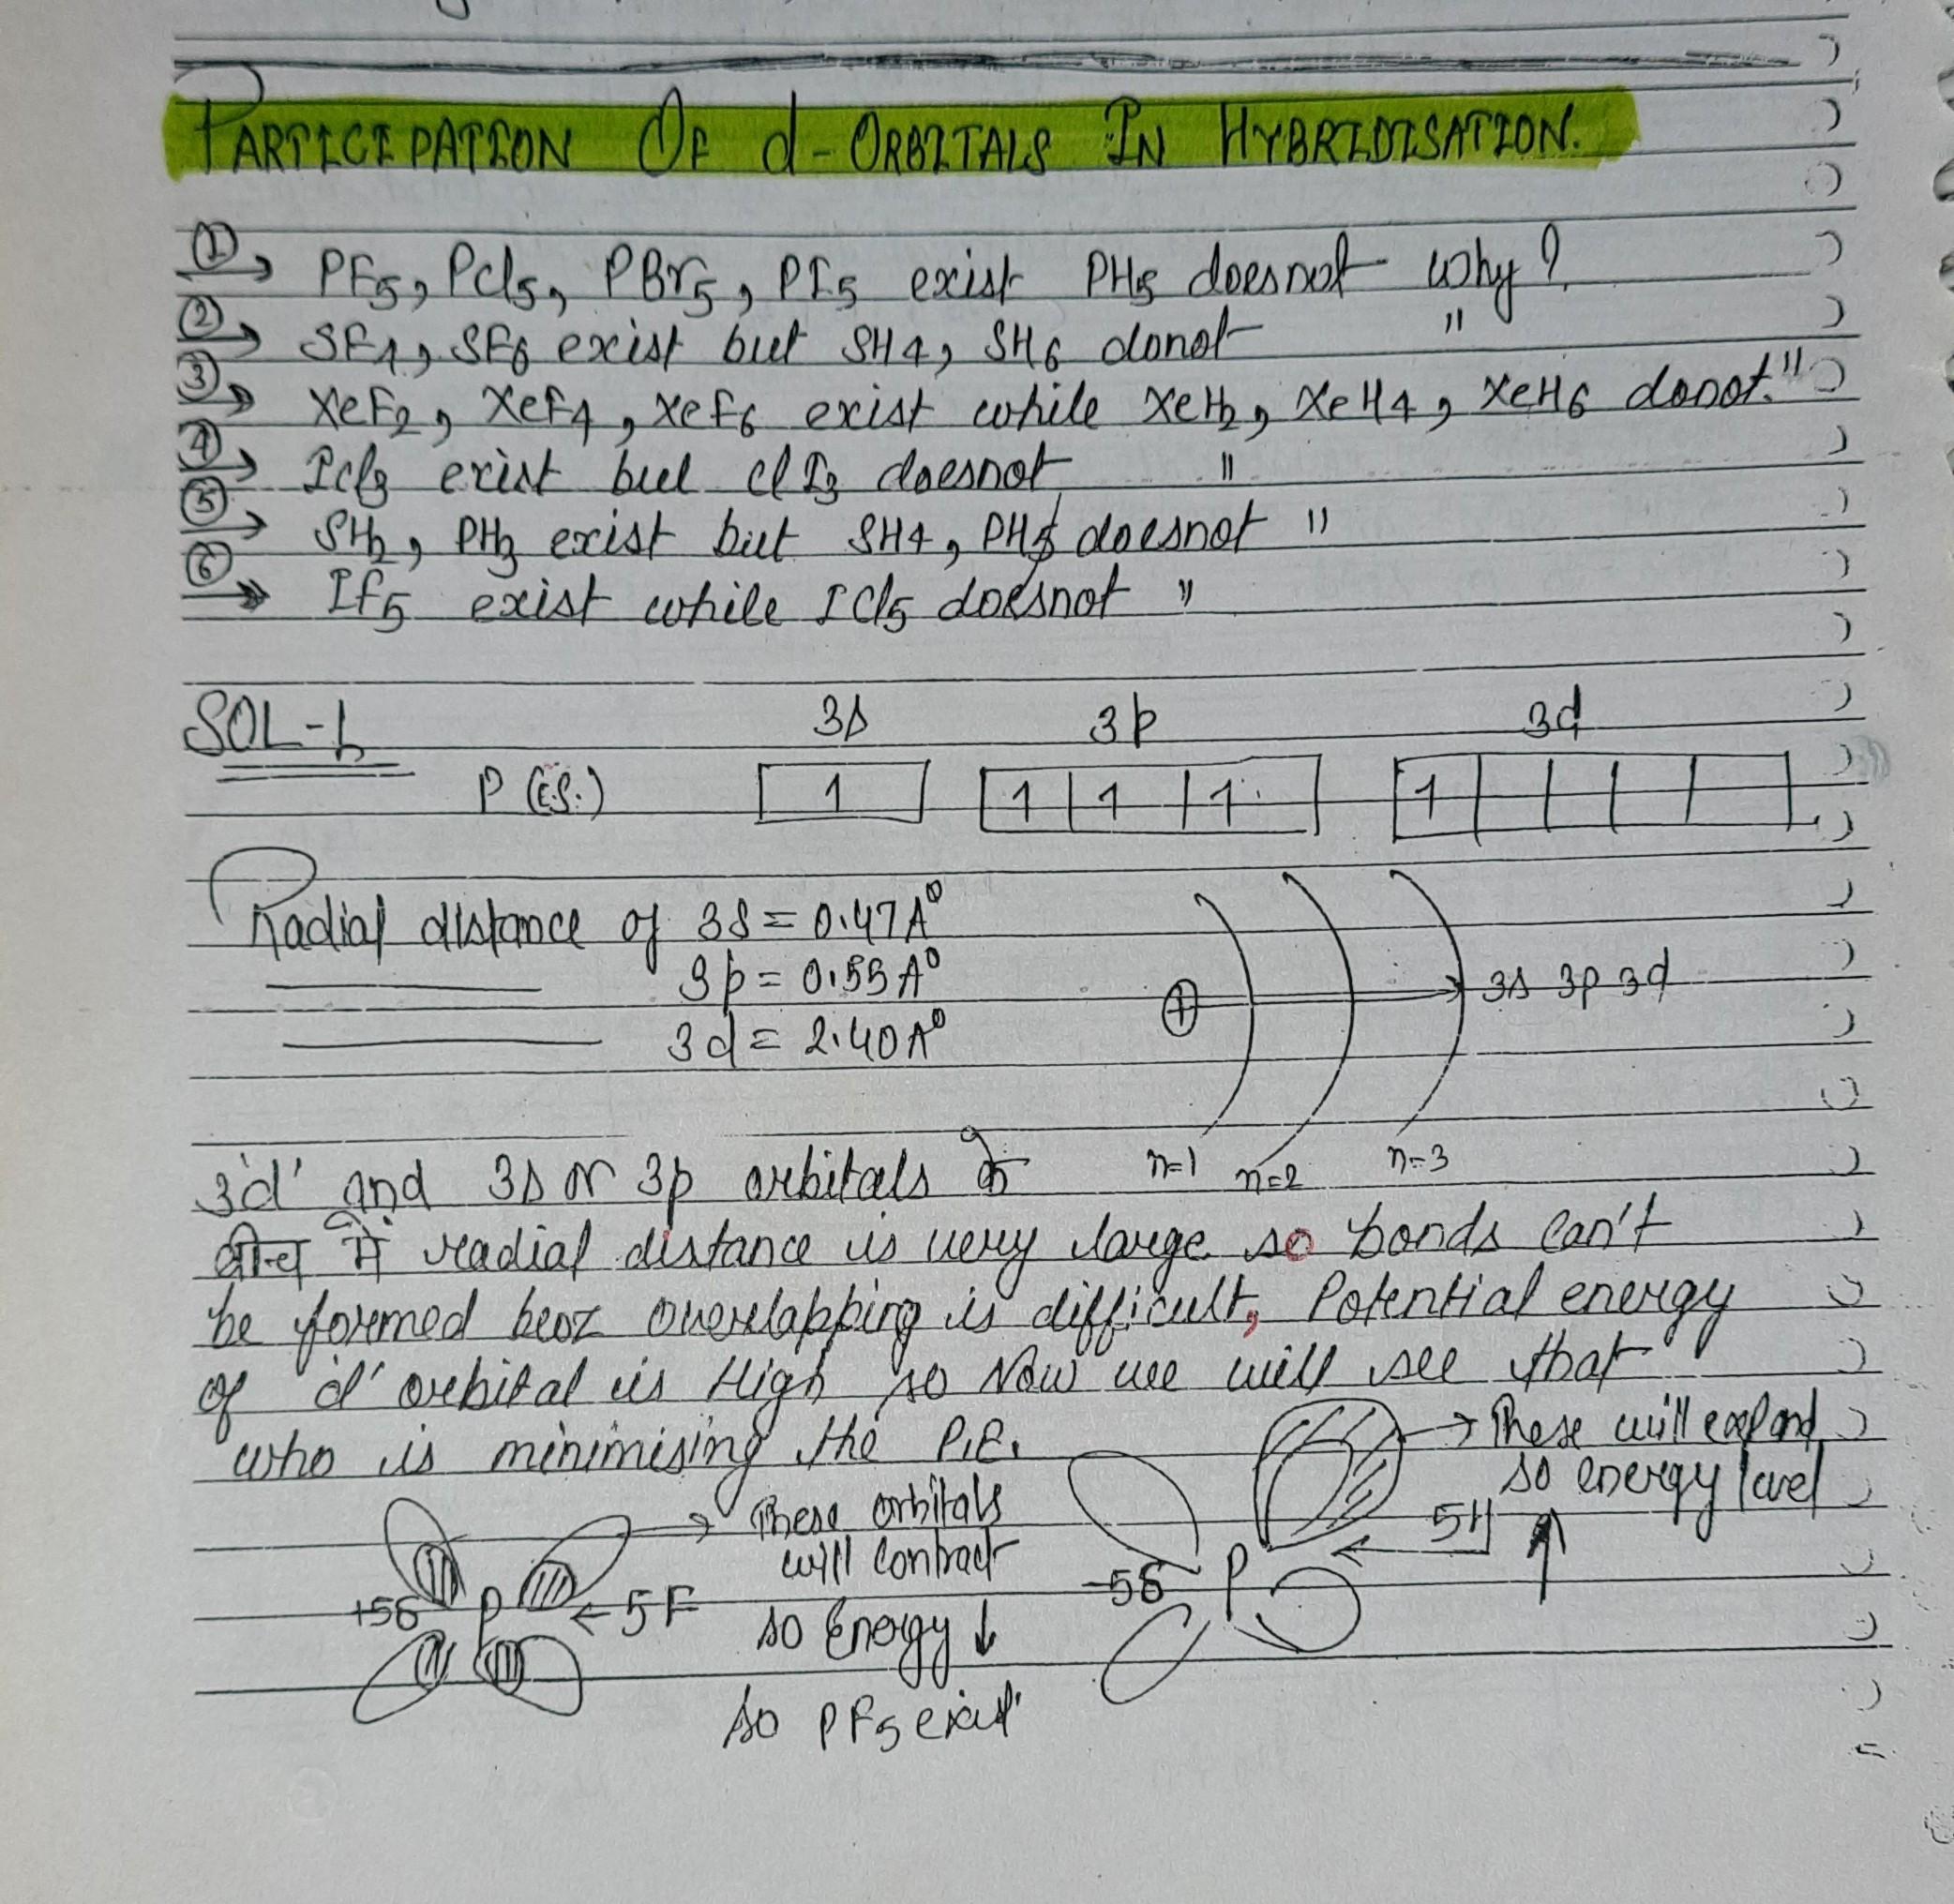 PARTICIPATION OF d-ORBITALS IN HYBRIDISATION.
① → PF5, PCl5, PBr5, PI5 exist PH5 doesnot why?
② → SF4, SF6 exist but SH4, SH6 donot "
③ → XeF2, XeF4, XeF6 exist while XeH2, XeH4, XeH6 donot. "
④ → ICl3 exist but ClI3 doesnot "
⑤ → SH2, PH3 exist but SH4, PH5 doesnot "
⑥ → If5 exist while ICl5 doesnot "
SOL-1 3s 3p 3d
P (E.S.) 1 1 1 1 1
Radial distance of 3s = 0.47A°
3p = 0.55A°
3d = 2.40A°
+ 3s 3p 3d
n=1 n=2 n=3
3'd' and 3s or 3p orbitals के
बीच में radial distance is very large so bonds can't
be formed becoz overlapping is difficult, Potential energy
of 'd' orbital is High so Now we will see that
who is minimising the P.E.
These orbitals
will contract
so Energy ↓
so PF5 exist
+5δ P ← 5F
→ These will expand
so energy level ↑
-5δ P ← 5H